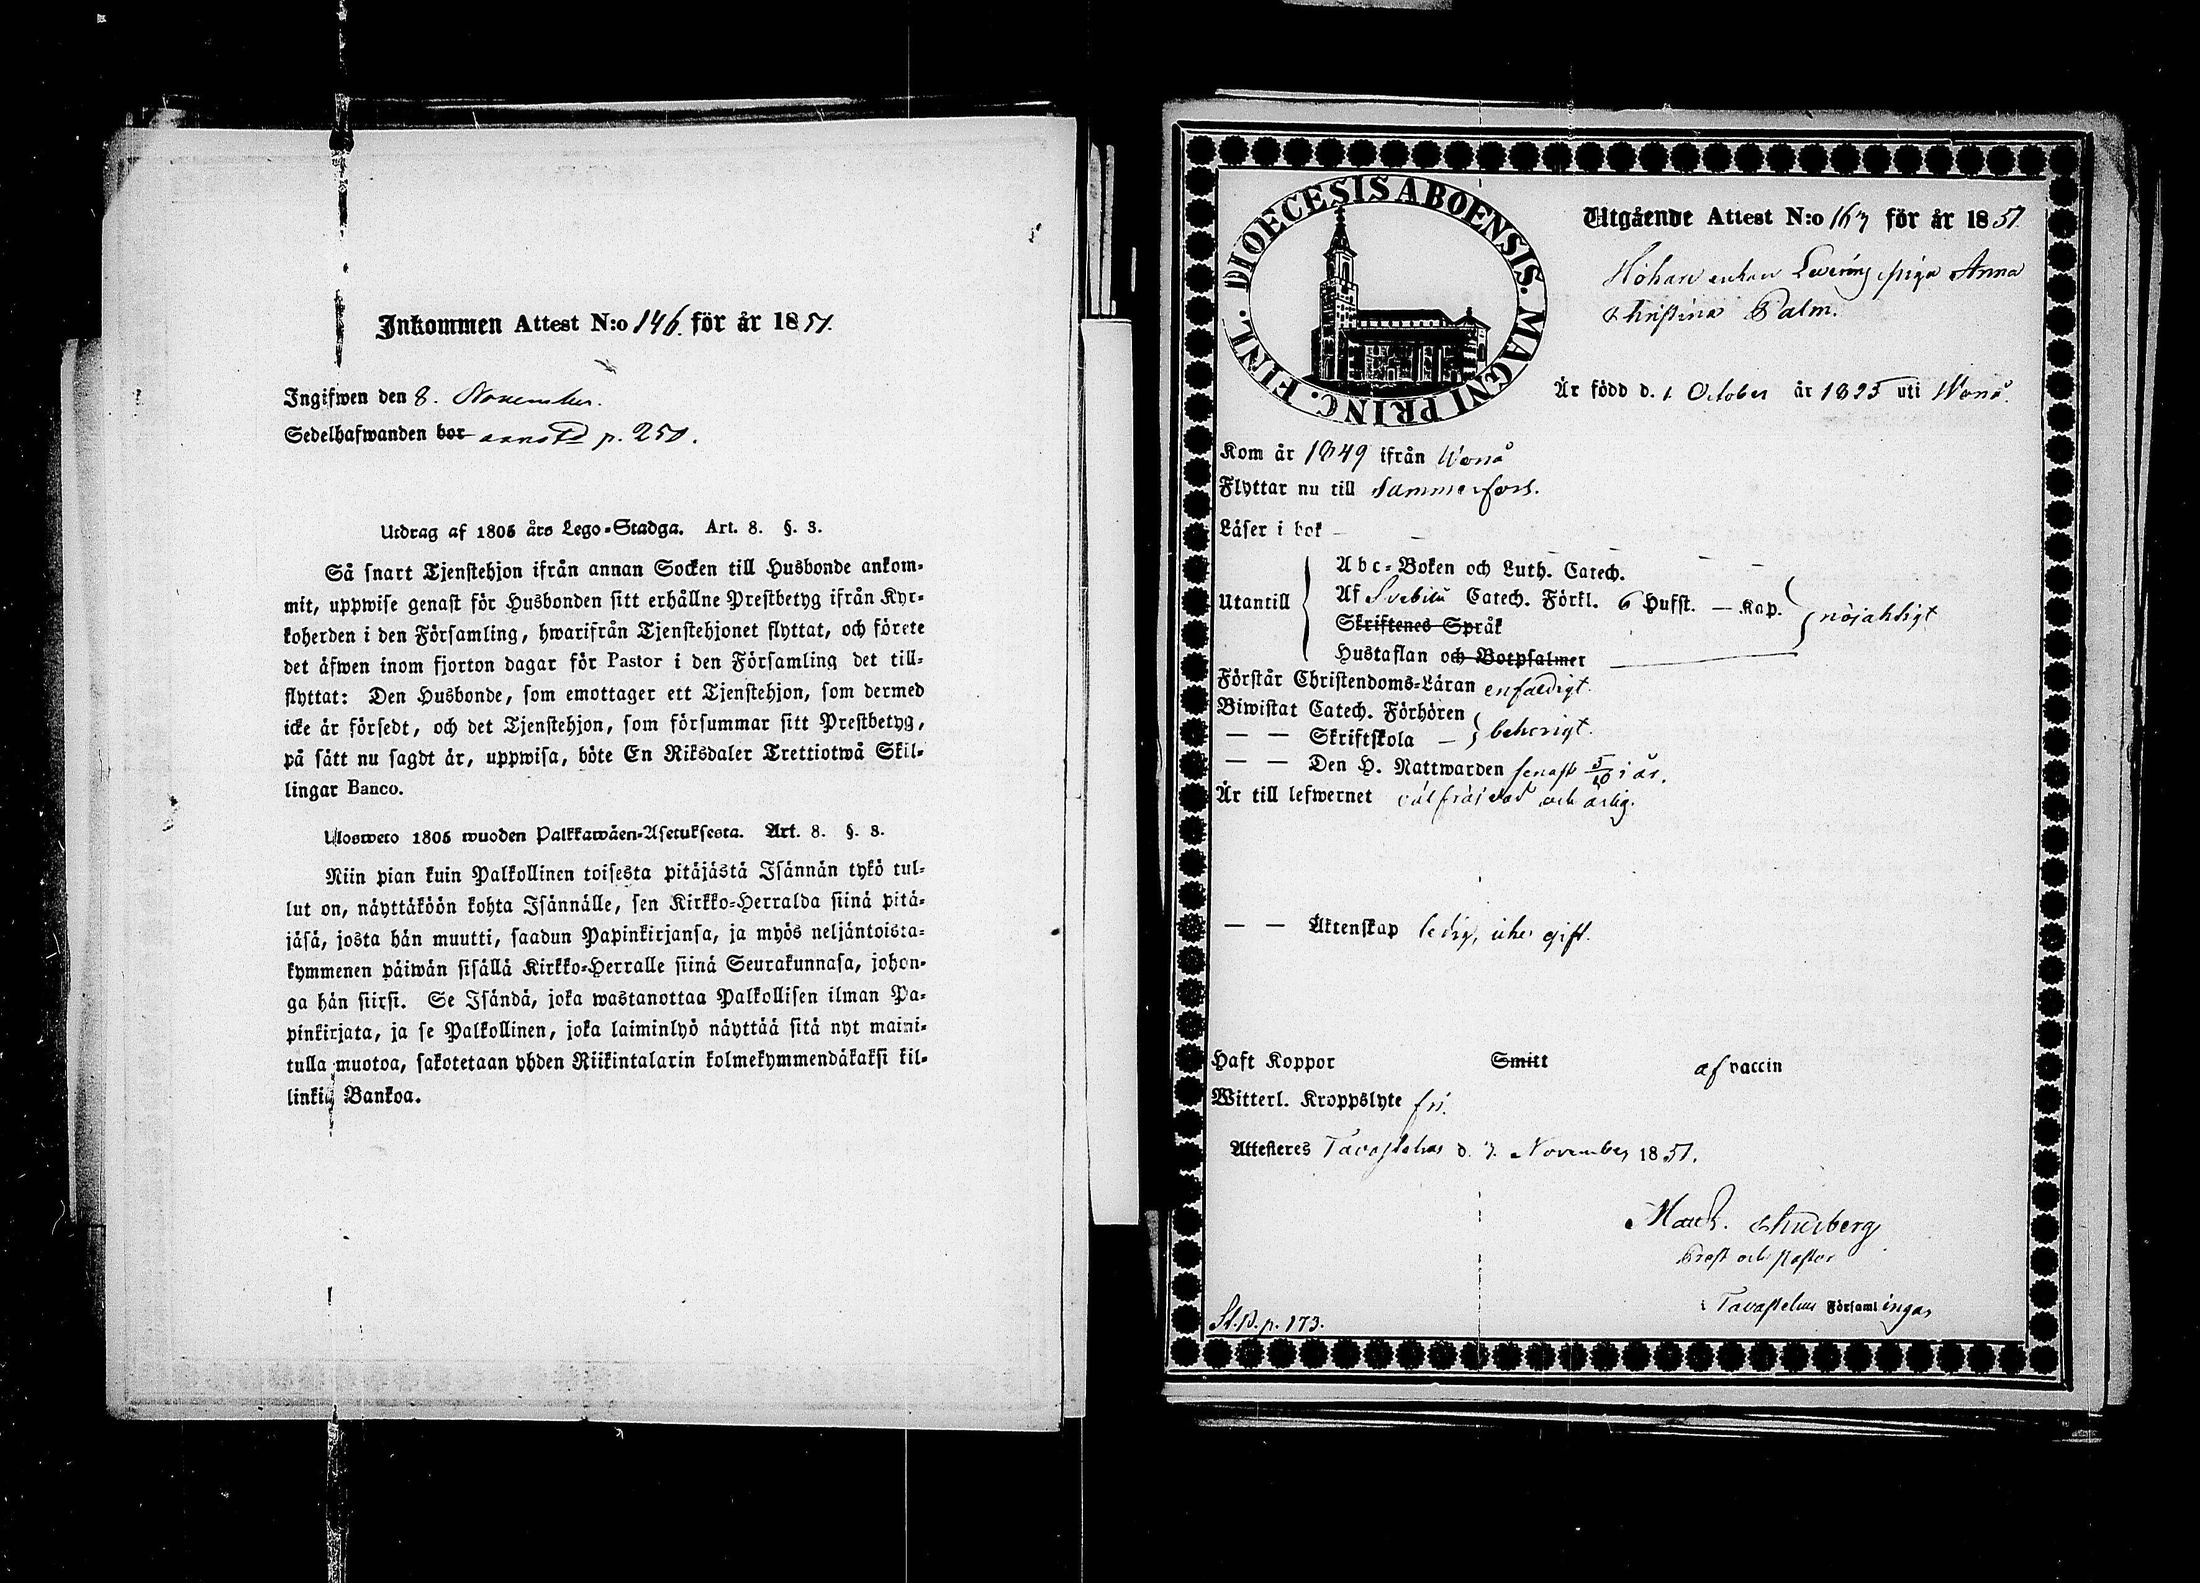 Inkommen Attest N:o 146. för år 1851.
Ingifwen den 8. November.
Sedelhafwanden bor p. 250.
Utdrag af 1805 års Lego-Stadga. Art. 8. §. 3.
Så snart Tjenstehjon ifrån annan Socken till Husbonde ankom-
mit, uppwise genast för Husbonden sitt erhållne Prestbetyg ifrån Kyr-
koherden i den Församling, hwarifrån Tjenstehjonet flyttat, och förete
det äfwen inom fjorton dagar för Pastor i den Församling det till-
flyttat: Den Husbonde, som emottager ett Tjenstehjon, som dermed
icke är försedt, och det Tjenstehjon, som försummar sitt Prestbetyg,
på sätt nu sagdt är, uppwisa, böte En Riksdaler Trettiotwå Skil-
lingar Banco.
Ulosweto 1805 wuoden Palkkawäen-Asetuksesta. Art. 8. §. 3.
Niin pian kuin Palkollinen toisesta pitäjästä Isännän tykö tul-
lut on, näyttäköön kohta Isännälle, sen Kirkko-Herralda siinä pitä-
jäsä, josta hän muutti, saadun Papinkirjansa, ja myös neljäntoista-
kymmenen päiwän sisällä Kirkko-Herralle siinä Seurakunnasa, johon-
ga hän siirsi. Se Isändä, joka wastanottaa Palkollisen ilman Pa-
pinkirjata, ja se Palkollinen, joka laiminlyö näyttää sitä nyt maini-
tulla muotoa, sakotetaan yhden Riikintalarin kolmekymmendäkaksi kil-
linkiä Bankoa.
DIOECESIS ABOENSIS. MAGNI PRINC. FINL.
Utgående Attest N:o 163 för år 1851.
enkan piga Anna
Christina Palm.
Är född d. 1 October år 1825 uti Wånå.
Kom år 1849 ifrån Wånå
Flyttar nu till Tammerfors.
Läser i bok –
Utantill
Abc-Boken och Luth. Catech.
Af Svebilii Catech. Förkl. 6 Hufst. — Kap.
nöjaktigt
Skriftenes Språk
Hustaflan och Botpsalmer
Förstår Christendoms-Läran enfaldigt.
Biwistat Catech. Förhören
— — Skriftskola – behörigt.
— — Den H. Nattwarden senast 5/10 i år.
Är till lefwernet välfräjdad och ärlig.
— — Äktenskap ledig, icke gift.
Haft Koppor Smitt af vaccin
Witterl. Kroppslyte fri.
Attesteres Tavastehus d. 3. November 1851.
Prost och Pastor
i Tavastehus Församlingar
St.B. p. 173.